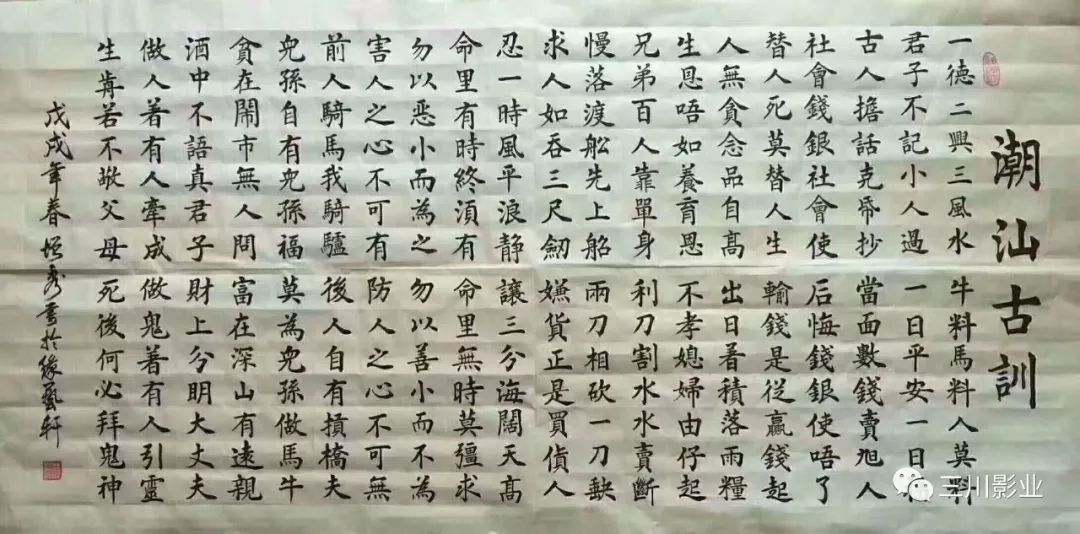 潮汕古訓
一德二興三風水 牛料馬料人莫
君子不記小人過 一日平安一日
古人擔話克帋抄 當面數錢賣旭人
社會錢銀社會使 后悔錢銀使唔了
替人死莫替人生 輸錢是從贏錢起
人無貪念品自高 出日著積落雨糧
生恩唔如養育恩 不孝媳婦由仔起
兄弟百人靠單身 利刀割水水賣斷
慢落渡船先上船 兩刀相砍一刀缺
求人如吞三尺劍 嫌貨正是買貨人
忍一時風平浪静 讓三分海闊天高
命里有時終須有 命里無時莫彊求
勿以恶小而為之 勿以善小而不為
害人之心不可有 防人之心不可無
前人騎馬我騎驢 後人自有摃橋夫
兒孫自有兒孫福 莫為兒孫做馬牛
貧在鬧市無人問 富在深山有遠親
酒中不語真君子 財上分明大丈夫
做人着有人牽成 做鬼着有人引靈
生肯若不敬父母 死後何必拜鬼神
戊戌年春 書於缘藝軒
三川影业